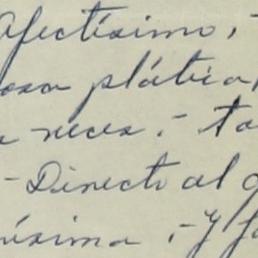 Afectísimo, -
osa plática,
a veces. - ta
- Directo al g
nísima, - Y fa